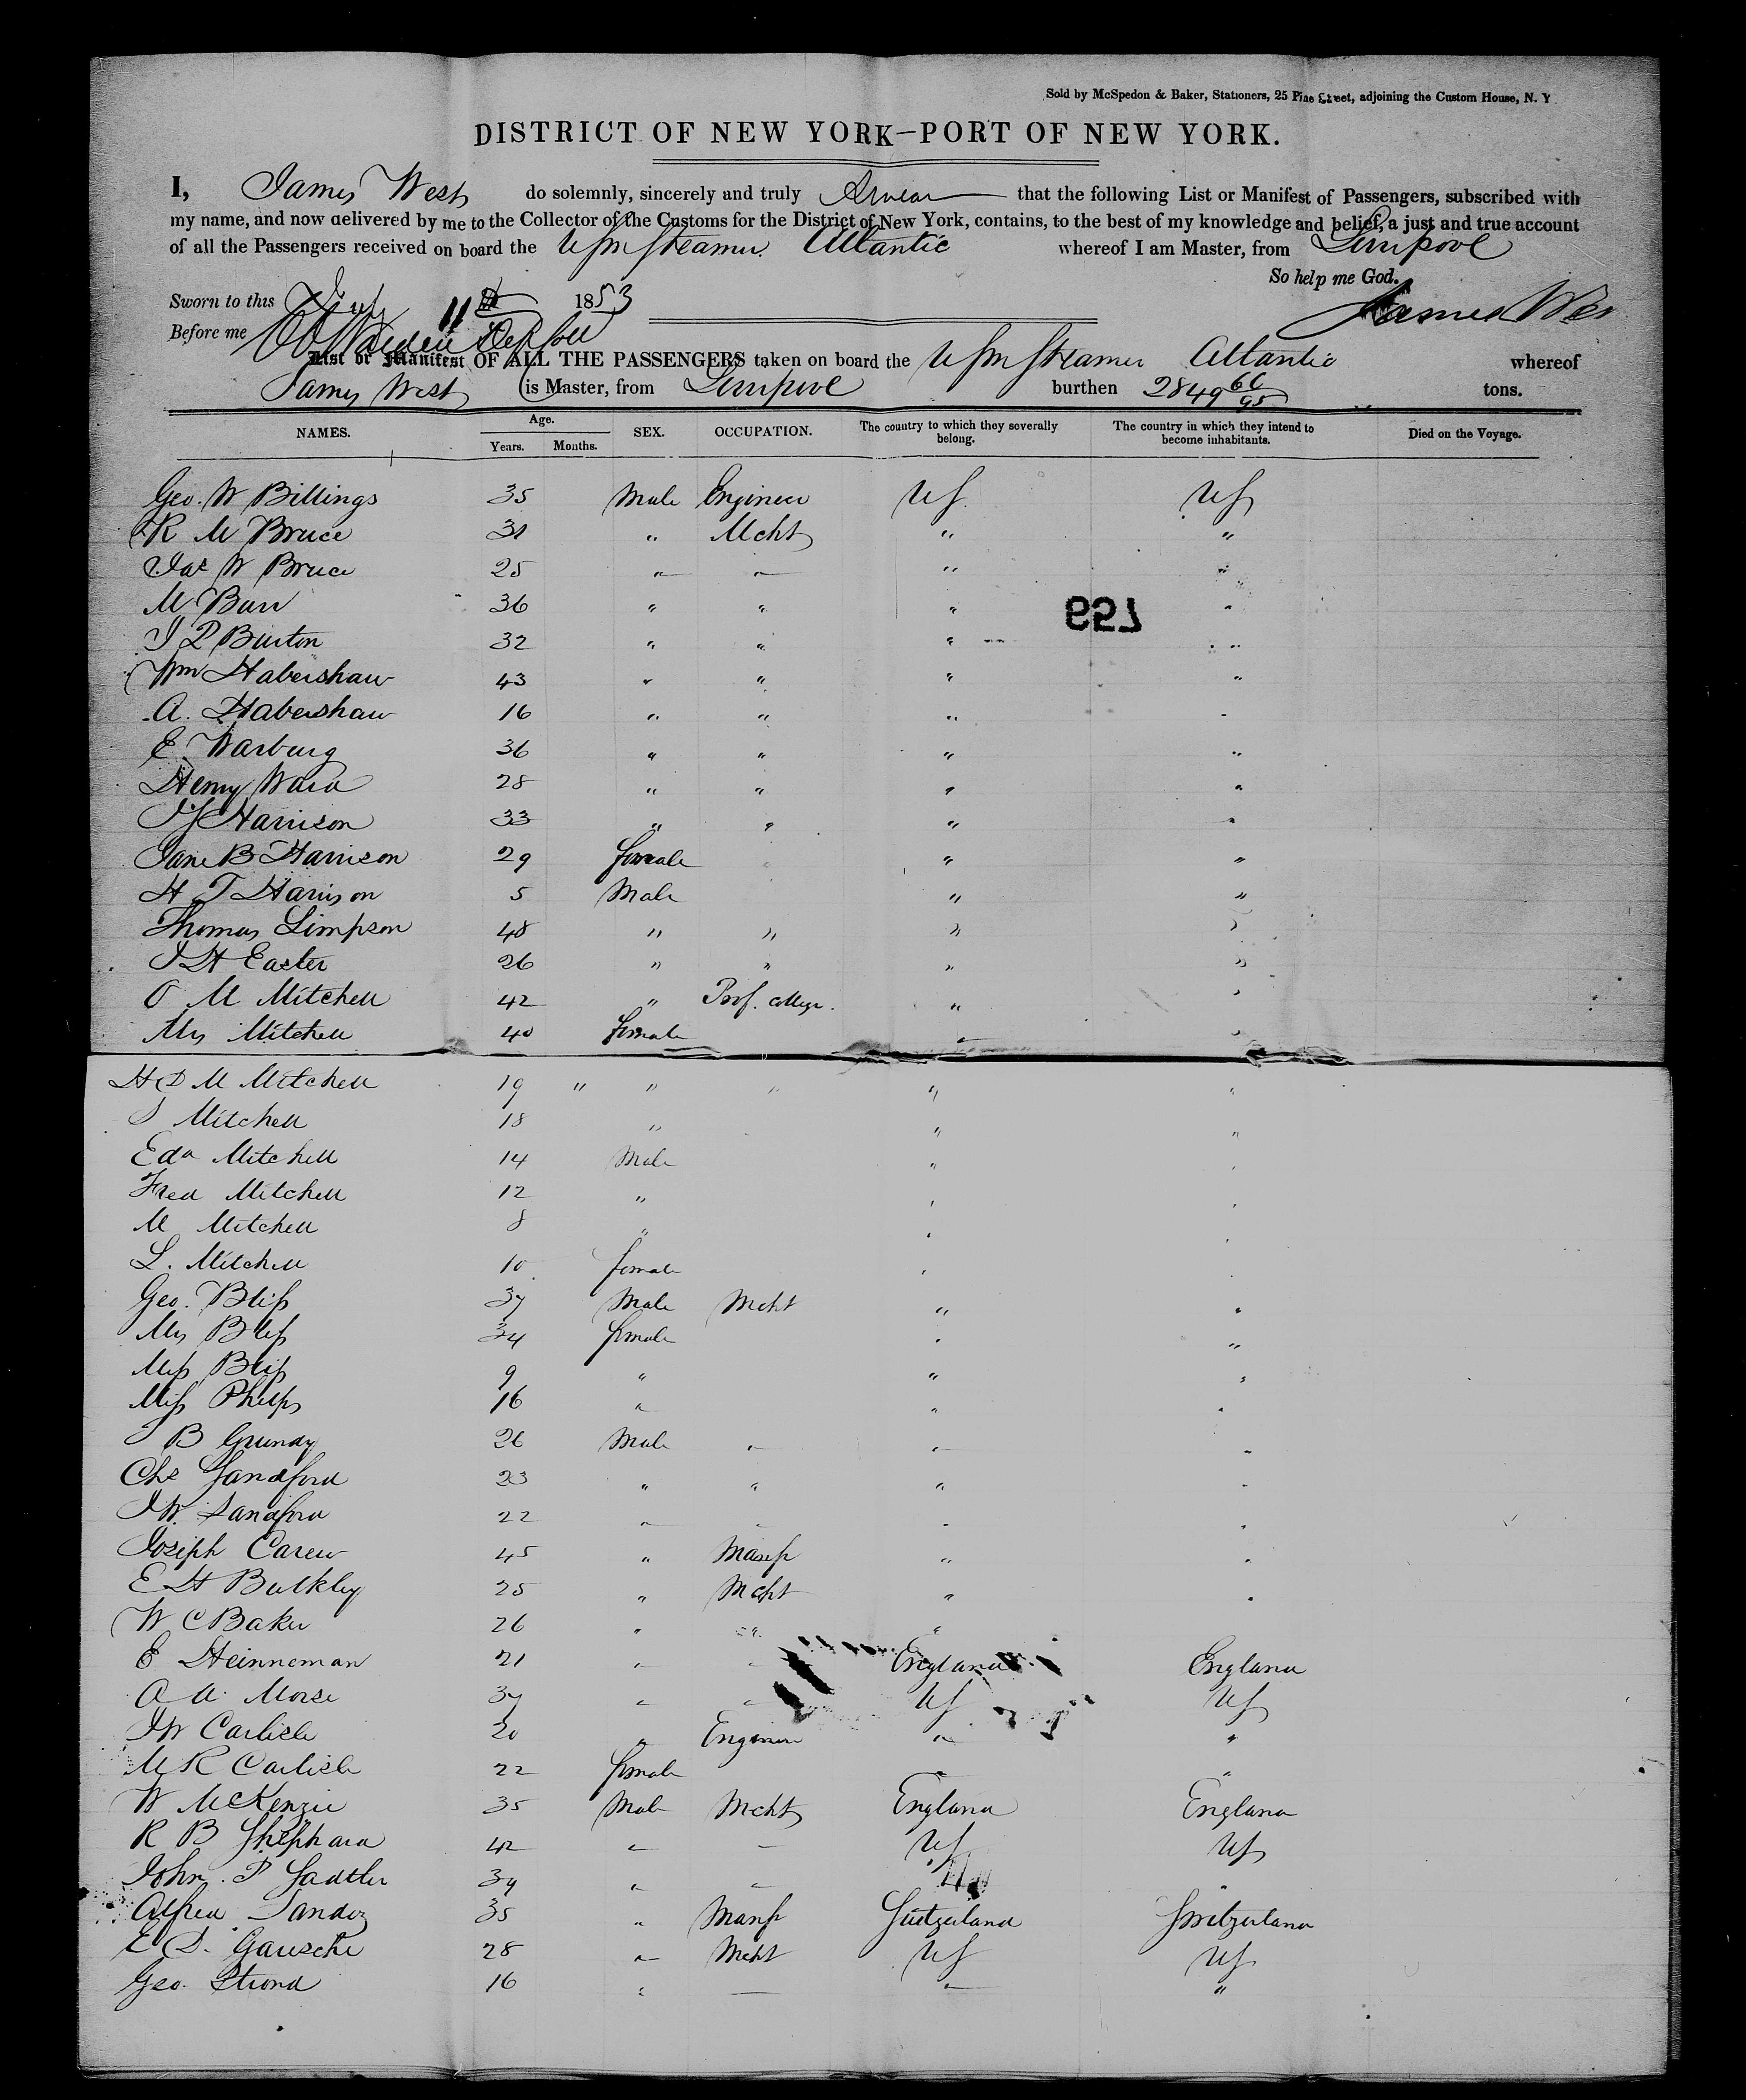 Sold by McSpedon & Baker, Stationers, 25 Pine Street, adjoining the Custom House, N. Y
DISTRICT OF NEW YORK—PORT OF NEW YORK.
I, James West do solemnly, sincerely and truly Swear that the following List or Manifest of Passengers, subscribed with
my name, and now delivered by me to the Collector of the Customs for the District of New York, contains, to the best of my knowledge and belief, a just and true account
of all the Passengers received on board the USM Steamer Atlantic whereof I am Master, from Liverpool
So help me God.
Sworn to this 11 1853 James Wes
Before me
List or Manifest OF ALL THE PASSENGERS taken on board the USM Steamer Atlantic whereof
James West is Master, from Liverpool burthen 2849 66/95 tons.
NAMES. Age. Years. Months. SEX. OCCUPATION. The country to which they severally belong. The country in which they intend to become inhabitants. Died on the Voyage.
Geo. W Billings 35 Male Engineer US US
R M Bruce 31 " Mcht " "
Jas W Bruce 25 " " " "
M Burr 36 " " " "
J D Burton 32 " " " "
759
Wm Habershaw 43 " " " "
A. Habershaw 16 " " " "
E Warburg 36 " " " "
Henry Ward 28 " " " "
J S Harrison 33 " " " "
Jane B Harrison 29 female " "
H T Harrison 5 Male " "
Thomas Simpson 48 " " " "
J H Easter 26 " " " "
O M Mitchell 42 " Prof. college. " "
Mrs Mitchell 40 female " "
H D M Mitchell 19 " " " " "
S Mitchell 18 " " "
Edd Mitchell 14 Male " "
Fred Mitchell 12 " " "
M Mitchell 8 " " "
L. Mitchell 10 female " "
Geo. Bliss 37 Male Mcht " "
Mrs Bliss 34 female " "
Miss Bliss 9 " " "
Miss Phelps 16 " " "
J B Grundy 26 Male " " "
Chs Sandford 23 " " " "
J W. Sandford 22 " " " "
Joseph Carew 45 " Manfr " "
E H Bulkley 25 " Mcht " "
W C Baker 26 " " "
E Heinneman 21 " " England England
A A. Morse 37 " " US US
J W Carlisle 20 " Engineer " "
M R Carlisle 22 female " "
W McKenzie 35 Male Mcht England England
R B Shephard 42 " " US US
John. P Sadtler 39 " " "
Alfred Sandoz 35 " Manfr Switzerland Switzerland
E D. Gausche 28 " Mcht US US
Geo. Strond 16 " " " "